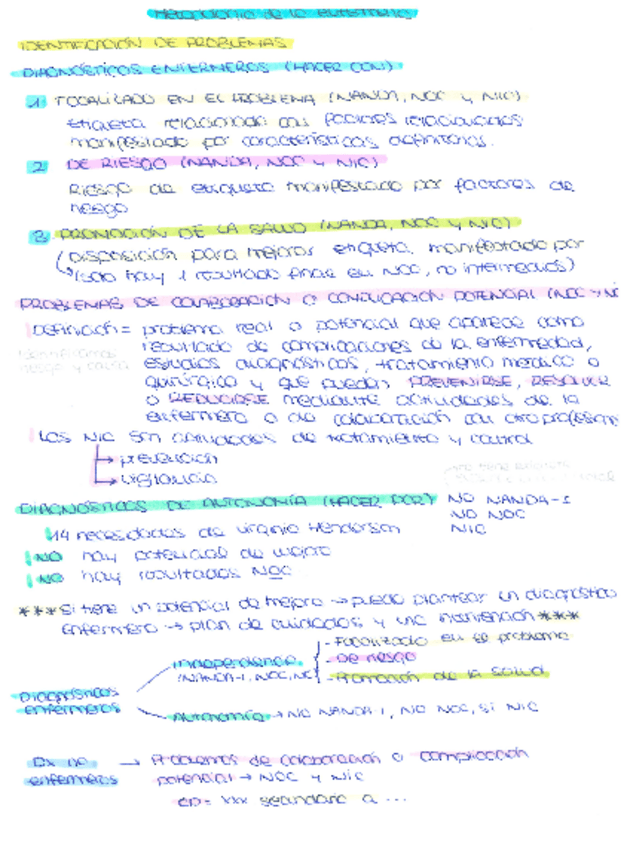 Metodología de la enfermería
IDENTIFICACIÓN DE PROBLEMAS
DIAGNÓSTICOS ENFERMEROS (HACER CON)
1 FOCALIZADO EN EL PROBLEMA (NANDA, NOC y NIC)
etiqueta relacionado con factores relacionados
manifestado por características definitorias.
2 DE RIESGO (NANDA, NOC y NIC)
Riesgo de etiqueta manifestado por factores de
riesgo
3 PROMOCIÓN DE LA SALUD (NANDA, NOC y NIC)
(Disposición para mejorar etiqueta, manifestado por
↳ solo hay 1 resultado final en NOC, no intermedios)
PROBLEMAS DE COLABORACIÓN O COMPLICACIÓN POTENCIAL (NOC y NI
Definición = problema real o potencial que aparece como
resultado de complicaciones de la enfermedad,
estudios diagnósticos, tratamiento médico o
quirúrgico y que pueden PREVENIRSE, RESOLVER
o REDUCIRSE mediante actividades de la
enfermera o de colaboración con otro profesion
Identificamos
riesgo y causa
Las NIC son actividades de tratamiento y control
→ prevención
→ vigilancia
DIAGNÓSTICOS DE AUTONOMÍA (HACER POR) NO NANDA-I
NO NOC
NIC
14 necesidades de Virginia Henderson
NO hay potencial de mejora
NO hay resultados NOC
*** Si tiene un potencial de mejora → puedo plantear un diagnóstico
enfermero → plan de cuidados y una intervención ***
Diagnósticos enfermeros
Independencia (NANDA-I, NOC, NIC)
- Focalizado en el problema
- De riesgo
- Promoción de la salud
Autonomía → NO NANDA-I, NO NOC, SI NIC
Dx no enfermeros → Problemas de colaboración o complicación
potencial → NOC y NIC
CP = xxx secundario a ...